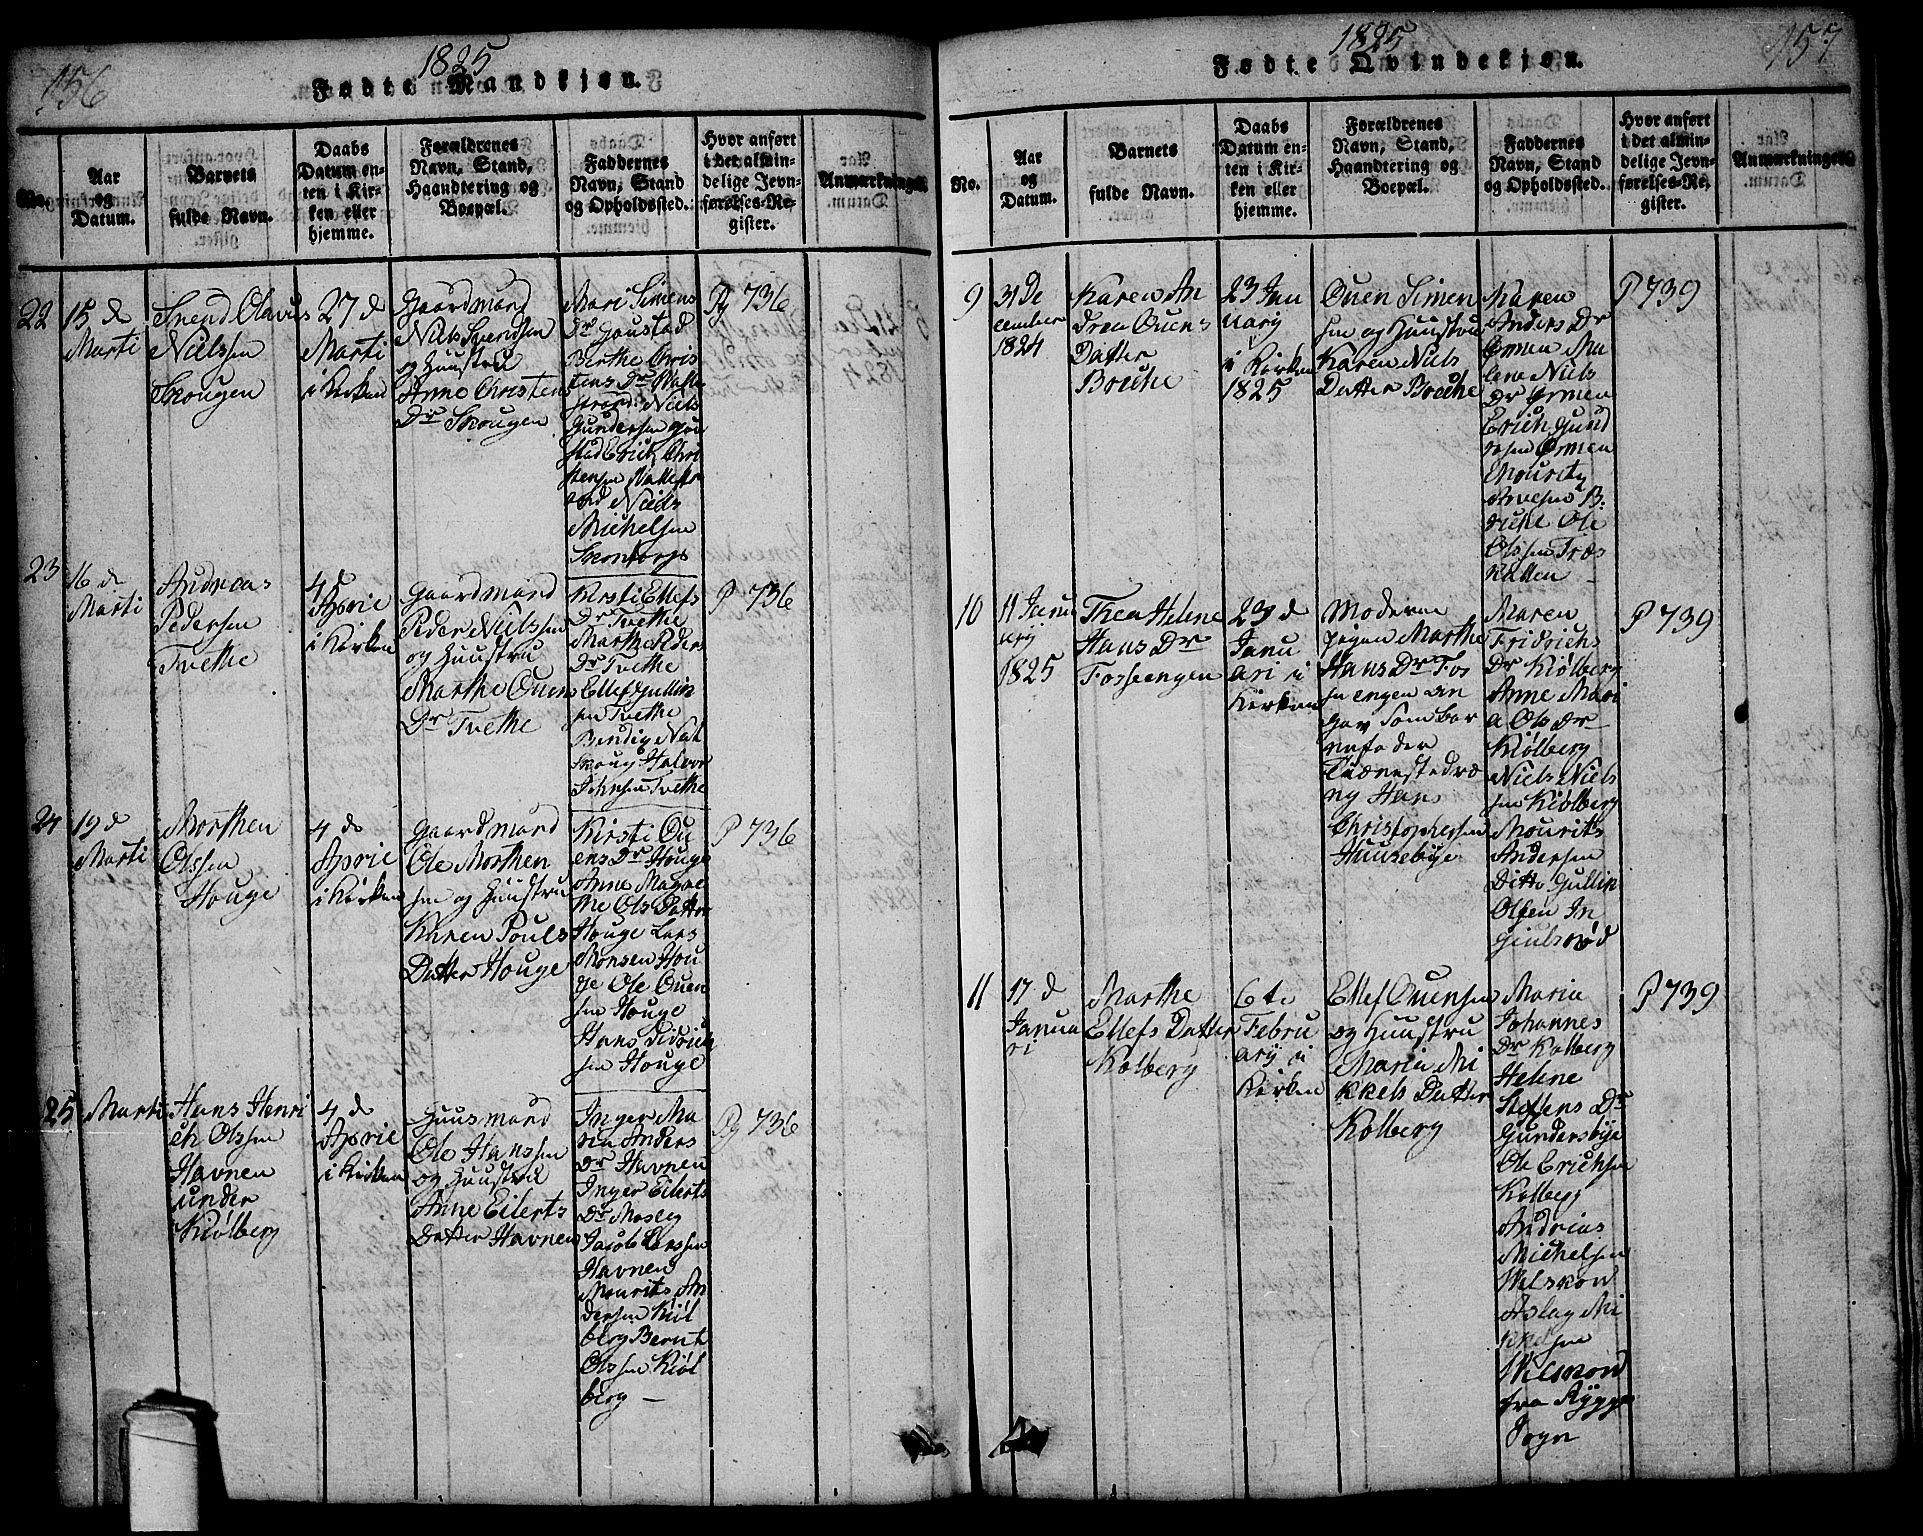 156
1825
Fødte Mandkjøn.
No.
Aar
og
Datum.
Barnets
fulde Navn.
Daabs
Datum en-
ten i Kir-
ken eller
hjemme.
Forældrenes
Navn, Stand,
Haandtering og
Boepæl.
Faddernes
Navn, Stand
og Opholdssted.
Hvor anført
i det almin-
delige Jevn-
førelses-Re-
gister.
Anmærkninger.
22
15 d
Marti
Svend Olavus
Nielssen
Skougen
27 d
Marti
i Kirken
Gaardmand
Niels Svendsen
og Huustru
Anne Christens
Dr Skougen
Mari Simens
Dr Goustad
Berthe Chris
tens Dr Walle
strand Niels
Gundersen Gou
stad Erich Chri
stensen Wallestr
and Niels
Michelsen
Skontorp
Pg 736
23
16 d
Marti
Andreas
Pedersen
Tvethe
4 d
Aprie
i Kirken
Gaardmand
Peder Nielssen
og Huustru
Marthe Ouens
Dr Tvethe
Kirsti Ellefs
Dr Tvethe
Marthe Peders
Dr Tvethe
Ellef Gullin
sen Tvethe
Bendig Nat
skoug Halvor
Johnsen Tvethe
P 736
24
19 d
Marti
Morthen
Olssen
Houge
4 de
Aprie
i Kirken
Gaardmand
Ole Morthen
sen og Huustru
Karen Pouls
Datter Houge
Kirsti Ou
ens Dr Houge
Anne Magre
the Ols Datter
Houge Lars
Monsen Hou
ge Ole Ouen
sen Houge
Hans Didrich
sen Houge
P 736
25
Marti
Hans Henri
ch Olssen
Havnen
under
Kiølberg
4 de
Aprie
i Kirken
Huusmand
Ole Hanssen
og Huustru
Anne Eilerts
Datter Havnen
Inger Ma
ria Anders
Dr Havnen
Inger Eilerts
Dr Moseg
Jacob Larssen
Havnen
Mourits An
dersen Kiøl
berg Bernt
Olssen Kiøl
berg –
Pg 736
157
1825
Fødte Qvindekjøn.
No.
Aar
og
Datum.
Barnets
fulde Navn.
Daabs
Datum en-
ten i Kir-
ken eller
hjemme.
Forældrenes
Navn, Stand,
Haandtering og
Boepæl.
Faddernes
Navn, Stand
og Opholdssted.
Hvor anført
i det almin-
delige Jevn-
førelses-Re-
gister.
Anmærkninger.
9
31 De
cember
1824
Karen An
drea Ouens
Datter
Broche
23 Jan
uarij
i Kirken
1825
Ouen Simen
sen og Huustru
Karen Niels
Datter Broche
Karen
Anders Dr
Ørmen Ma
lene Niels
Dr Ørmen
Erich Gund
ersen Ørmen
Mouritz
Arvesen B
roche Ole
Olssen Træs
kelten
P 739
10
11 Janu
arij
1825
Thea Helene
Hans Dr
Fossengen
23 d
Janu
ari i
Kirken
Moderen
Pigen Marthe
Hans Dr Fos
sengen an
gav som Bar
nefader
Tienestedræ
ng Hans
Christophersen
Huusebye
Maren
Fridrichs
Dr Kiølberg
Anne Mari
a Ols Dr
Kiølberg
Niels Niels
sen Kiølberg
Mourits
Andersen
Ditto Gullin
Olsen In
giulsrød
P 739
11
17 d
Janua
ri
Marthe
Ellefs Datter
Kolberg
6te
Febru
arij i
Kirken
Ellef Ouensen
og Huustru
Maria Mi
kkels Datter
Kolberg
Maria
Johannes
Dr Kolberg
Helene
Steffens Dr
Gundersbye
Ole Erichsen
Kolberg
Andreas
Michelsen
Welskow
Aslag Mi
kkelsen
fra Rygge
Sogn
P 739